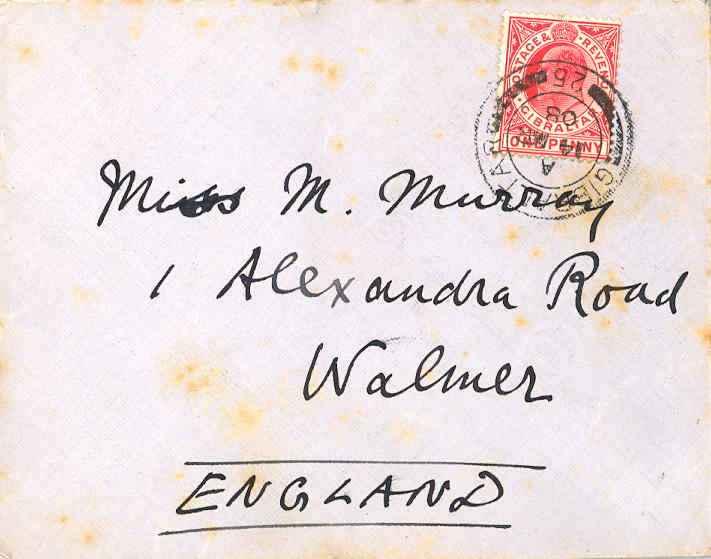 POSTAGE & REVENUE
GIBRALTAR
ONE PENNY
GIBRALTAR
A
25
08
Miss M. Murray
1 Alexandra Road
Walmer
ENGLAND